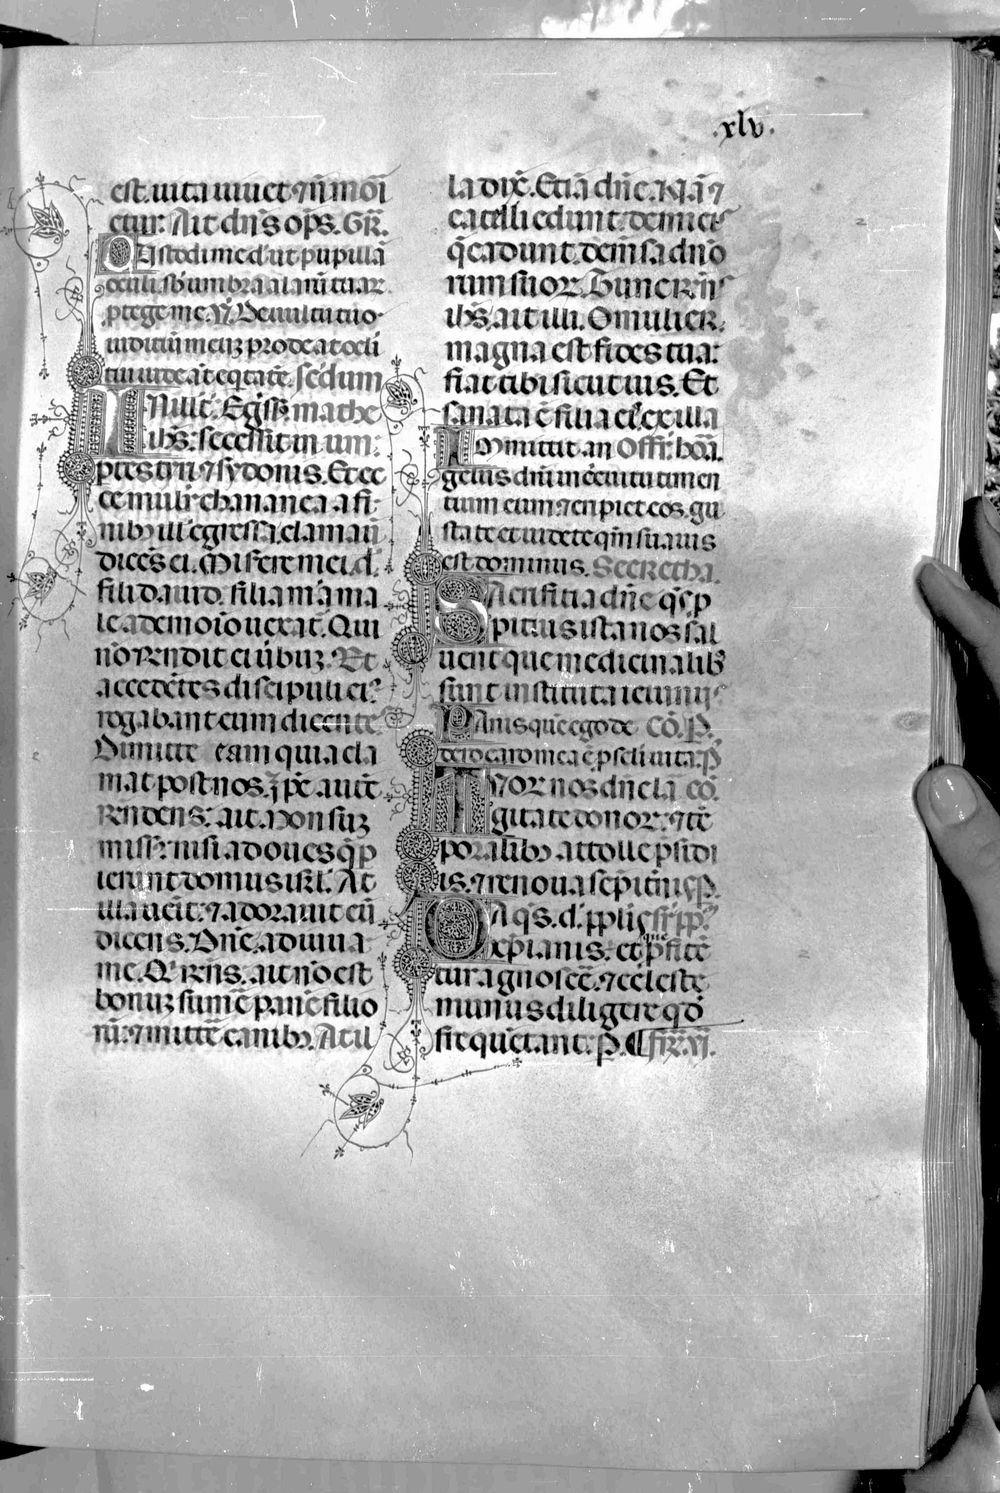 .xlv.
est. uita uiuet ⁊ n̄ mori
etur. Ait dn̄s op̄s. GR̄.
Custodi me d̄. ut pupillā
oculi. sb̄ umbra alarū tuar
ꝓtege me. V̄. De uultu tuo
iudiciū meuꝫ prodeat ocli
tui uideāt eq̄tatē. secdum
IN illo t̄. Egr̄ss̄. mathe
ih̄s: secessit in um:
ptes tyri ⁊ sydonis. Et ec
ce mulr̄ chananea a fi
nibꝫ ill̄ egressa. clamauī
dicēs ei. Miserere mei. d̄.
fili dauid. filia m̄a ma
le a demōio uexat̄. Qui
nō rn̄dit ei ūbuꝫ. Et
accedētes discipuli eiꝰ
rogabant eum dicente
Dimitte eam quia cla
mat post nos. Ip̄e autē
rn̄dens: ait. Non suꝫ
miss̄: nisi ad oues q̄ p
ierunt domus isrl̄. At
illa uēit: ⁊ adorauit eū
dicens. Dn̄e. adiuua
me. Qi rn̄s. ait. nō est
bonuꝫ sumē panē filio
rū: ⁊ mittē canibꝫ. At il
la dix̄. Etiā dn̄e. Nā ⁊
catelli edunt de micis
q̄ cadunt. de mēsa dn̄o
rum suor. Tunc rn̄s
ih̄s. ait illi. O mulier.
magna est fides tua:
fiat tibi sicut uis. Et
sanata ē filia eiꝰ ex illa
Inmittit an Offr̄. horā.
gelus dn̄i in cēuitu timen
tium eum: ⁊ eripiet eos. gu
state et uidete qm̄ suauis
est dominus. Secreta.
Sacrificia dn̄e q̄s p
pitius ista nos sal
uent que medicinalibꝰ
sunt instituta ieiuniis
Panis que ego de Cō. P.
dero caro mea ē. p seculi uita. P̄
Munor nos dn̄e lā cō.
gitate donor: ⁊ tē
poralibꝫ attolle p̄sidi
is. ⁊ renoua sēpitnis. P.
Da q̄s. d̄. pplis sr̄ pp.
xp̄ianis: et que p̄fitē
tur agnoscē: ⁊ celeste
munus diligere qd̄
frequētant: P. ¶ fir̄. vi.